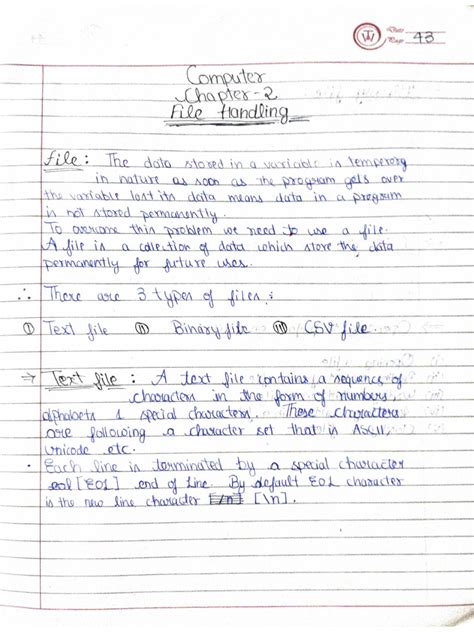 Date
Page 43
Computer
Chapter-2
File Handling
file : The data stored in a variable is temperory
in nature as soon as the program gets over
the variable lost its data means data in a program
is not stored permanently.
To overcome this problem we need to use a file.
A file is a collection of data which store the data
permanently for future uses.
∴ There are 3 types of files :
(i) Text file (ii) Binary file (iii) CSV file.
→ Text file : A text file contains a sequence of
characters in the form of numbers,
alphabets & special characters, These characters
are following a character set that is ASCII,
Unicode etc.
• Each line is terminated by a special character
eol [EOL] end of line. By default EOL character
is the new line character [/n] [\n].